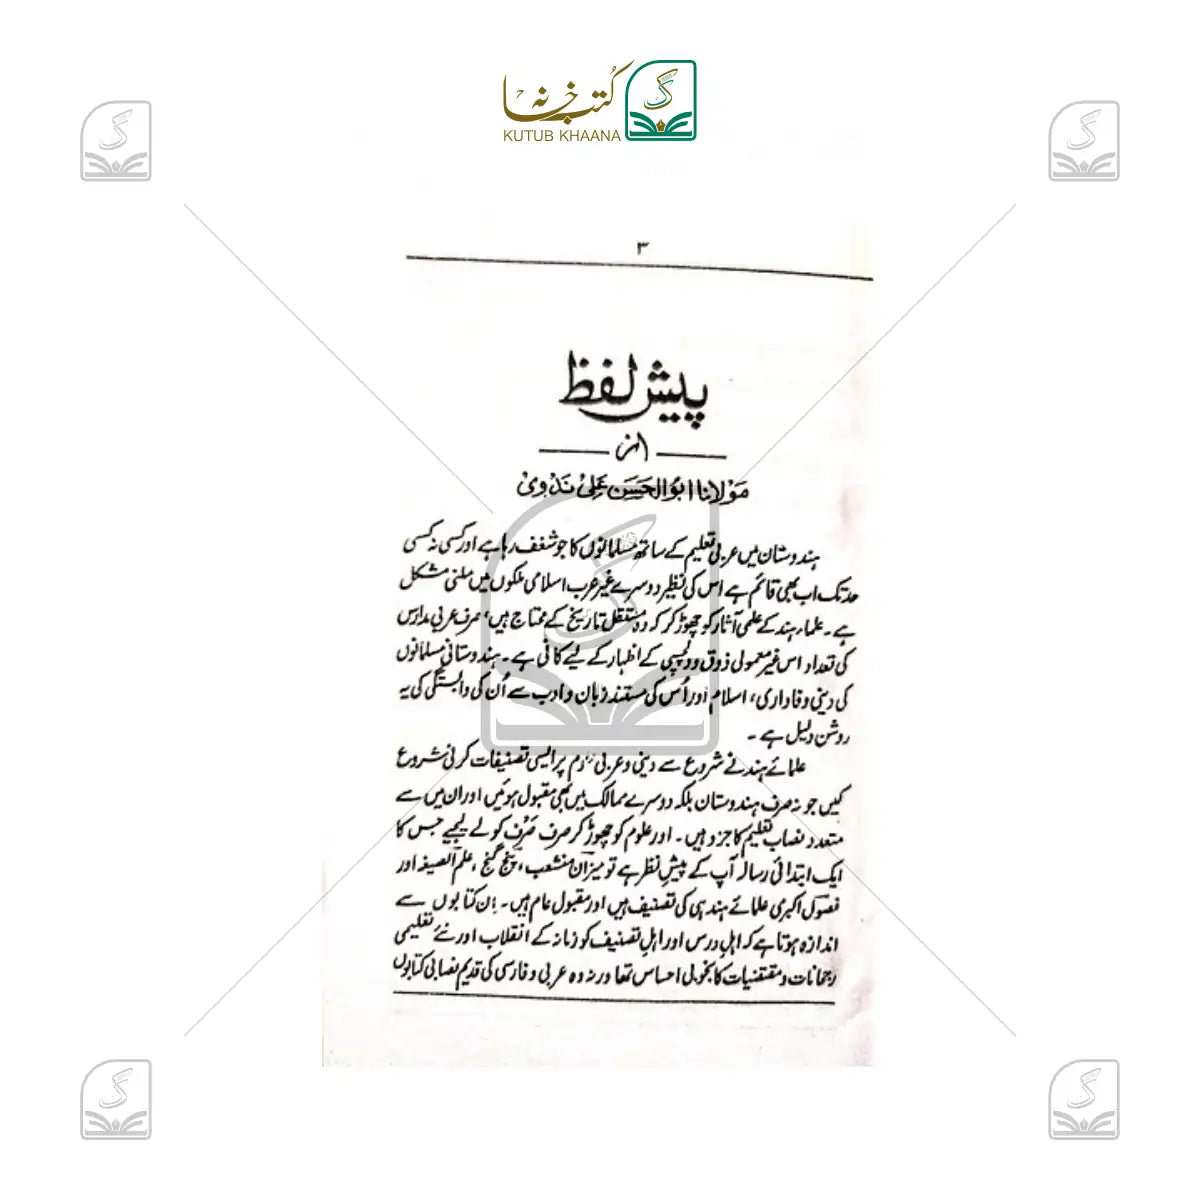 کتب خانہ
KUTUB KHAANA
۳
پیش لفظ
از
مولانا ابوالحسن علی ندوی
ہندوستان میں عربی تعلیم کے ساتھ مسلمانوں کا جو شغف رہا ہے اور کسی نہ کسی
حد تک اب بھی قائم ہے اس کی نظیر دوسرے غیر عرب اسلامی ملکوں میں ملنی مشکل
ہے۔ علماء ہند کے علمی آثار کو چھوڑ کر کہ وہ مستقل تاریخ کے محتاج ہیں، صرف عربی مدارس
کی تعداد اس غیر معمولی ذوق و دلچسپی کے اظہار کے لیے کافی ہے۔ ہندوستانی مسلمانوں
کی دینی وفاداری، اسلام اور اُس کی مستند زبان و ادب سے اُن کی وابستگی کی یہ
روشن دلیل ہے۔
علمائے ہند نے شروع سے دینی و عربی علوم پر ایسی تصنیفات کرنی شروع
کیں جو نہ صرف ہندوستان بلکہ دوسرے ممالک میں بھی مقبول ہوئیں اور ان میں سے
متعدد نصاب تعلیم کا جزو ہیں۔ اور علوم کو چھوڑ کر صرف صَرْف کو لے لیجیے جس کا
ایک ابتدائی رسالہ آپ کے پیشِ نظر ہے تو میزان منشعب، پنج گنج، علم الصیغہ اور
فصول اکبری علمائے ہند ہی کی تصنیف ہیں اور مقبول عام ہیں۔ اِن کتابوں سے
اندازہ ہوتا ہے کہ اہلِ درس اور اہلِ تصنیف کو زمانہ کے انقلاب اور نئے تعلیمی
رجحانات و مقتضیات کا بخوبی احساس تھا ورنہ وہ عربی و فارسی کی قدیم نصابی کتابوں